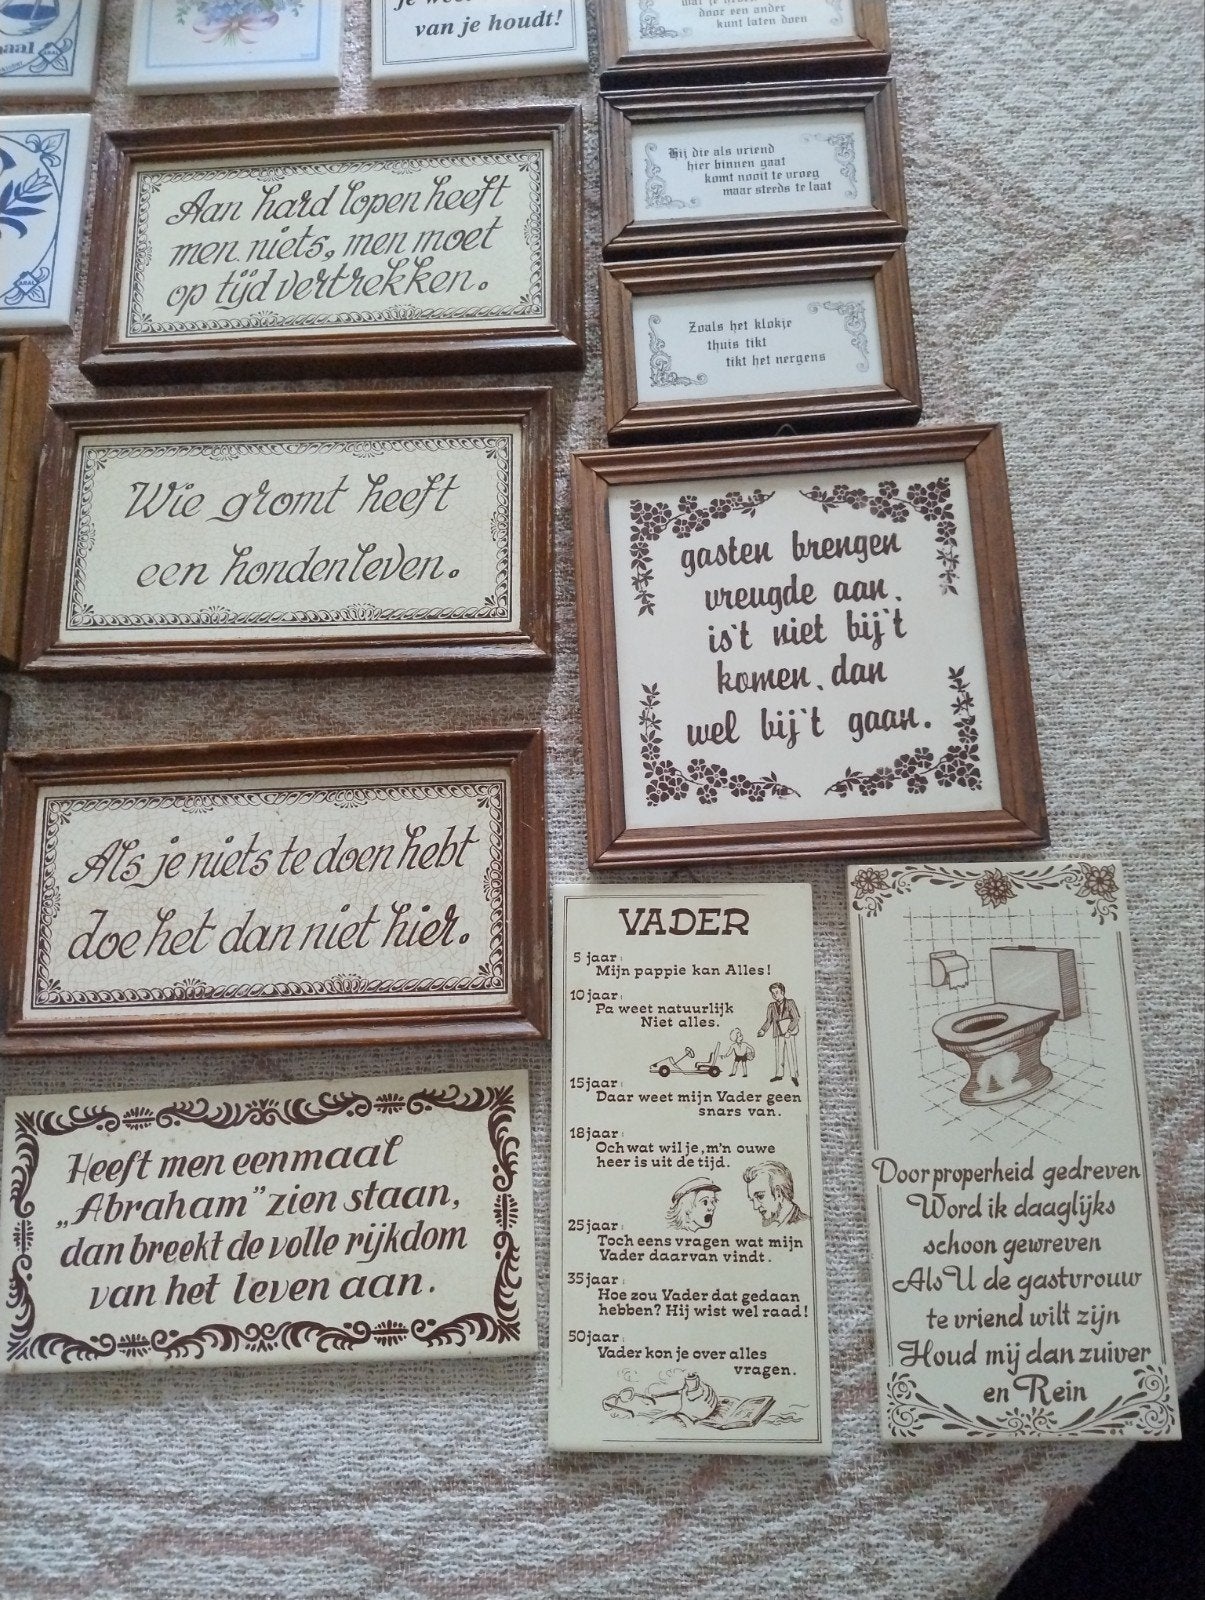 aal
ARAL
van je houdt!
door een ander
kunt laten doen
ARAL
Aan hard lopen heeft
men niets, men moet
op tijd vertrekken.
Hij die als vriend
hier binnen gaat
komt nooit te vroeg
maar steeds te laat
Zoals het klokje
thuis tikt
tikt het nergens
Wie gromt heeft
een hondenleven.
gasten brengen
vreugde aan.
is't niet bij't
komen, dan
wel bij't gaan.
Als je niets te doen hebt
doe het dan niet hier.
Heeft men eenmaal
„Abraham” zien staan,
dan breekt de volle rijkdom
van het leven aan.
VADER
5 jaar:
Mijn pappie kan Alles!
10 jaar:
Pa weet natuurlijk
Niet alles.
15 jaar:
Daar weet mijn Vader geen
snars van.
18 jaar:
Och wat wil je, m'n ouwe
heer is uit de tijd.
25 jaar:
Toch eens vragen wat mijn
Vader daarvan vindt.
35 jaar:
Hoe zou Vader dat gedaan
hebben? Hij wist wel raad!
50 jaar:
Vader kon je over alles
vragen.
Door properheid gedreven
Word ik daaglijks
schoon gewreven
Als U de gastvrouw
te vriend wilt zijn
Houd mij dan zuiver
en Rein